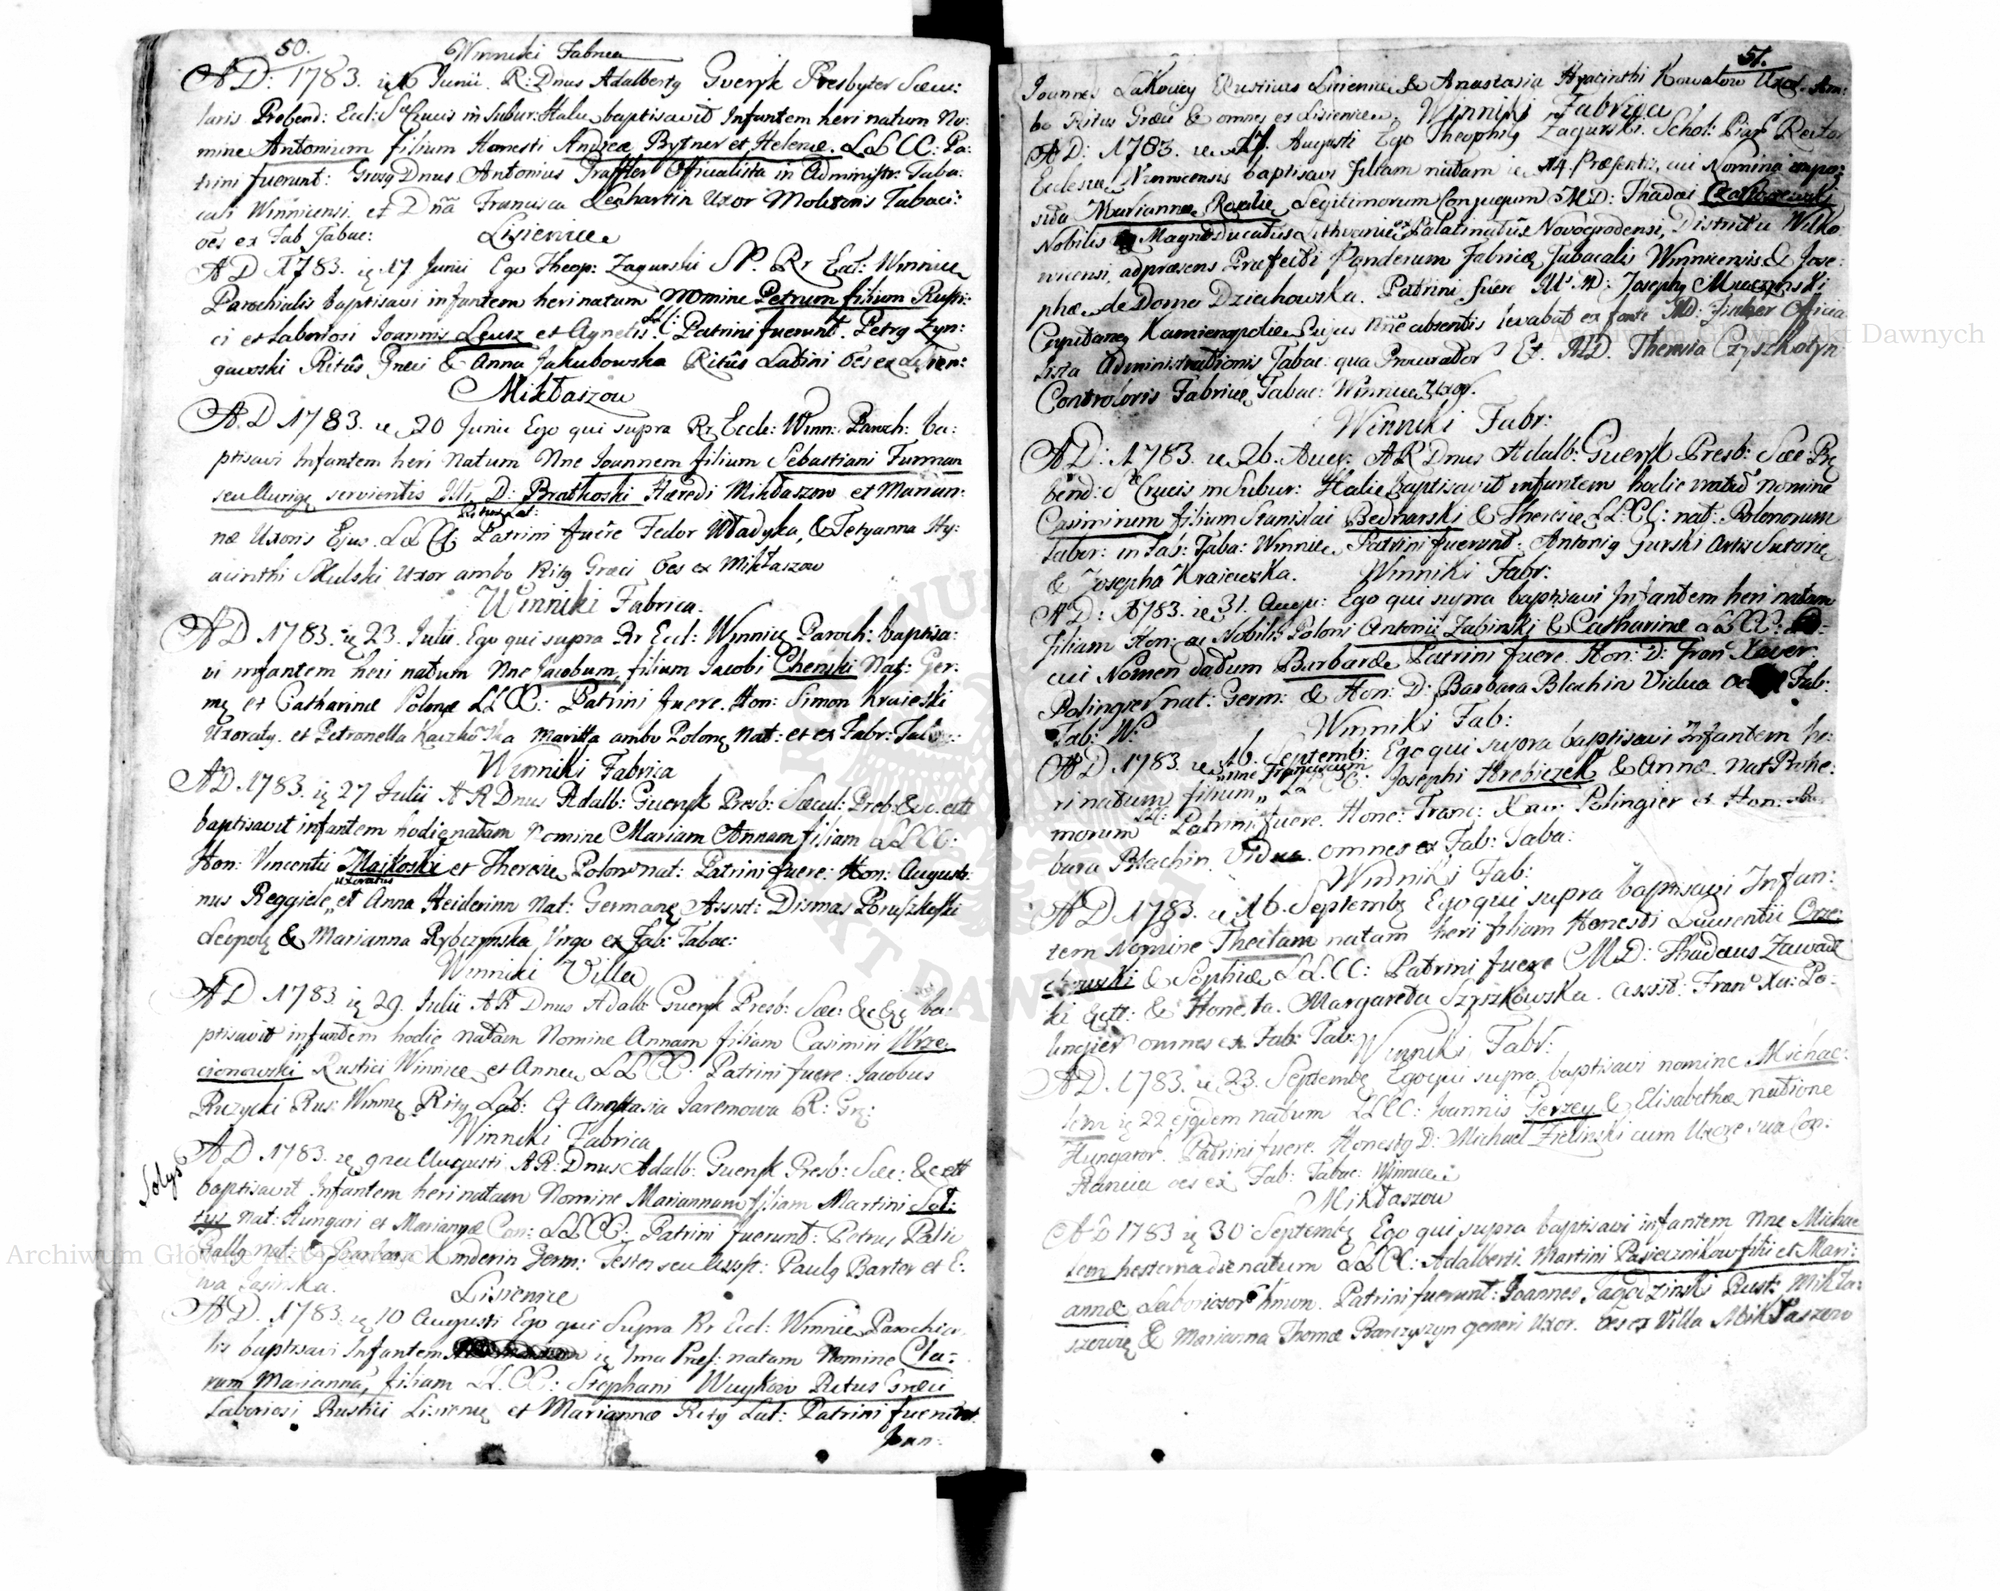 50.
Winniki Fabrica
AD: 1783. ię 16 Junii R: Dnus Adalbertg Guensk Presbyter Sæcu:
laris Prebend: Eccl: S Crucis in Subur: Halic baptisavit Infantem heri natum No:
mine Antonium filium Honesti Andreæ Prytner et Helenæ. LL CC: Pa:
trini fuerunt: Gnosg Dnus Antonius Praffler Officialista in Administr: Taba:
cali Winnicensi. et Dña Francisca Lenhartin Uxor Molitoris Tabaci:
oēs ex Fab Tabac:
Lisienice
AD 1783. ię 17 Junii Ego Theop: Zagurski SP. Rr Eccl: Winnice
Parochialis baptisavi infantem heri natum Nomine Petrum filium Rusti:
ci et Laboriosi Joannis Leusz et Agnetis LL C: Patrini fuerunt. Petrg Zyn:
gwoski Ritûs Græci & Anna Jakubowska Ritûs Latini oēs ex Lisien:
Mikłaszow
A.D 1783. ię 20 Junii Ego qui supra Rr Eccle: Winn: Paroch: ba:
ptisavi Infantem heri natum Nne Joannem filium Sebastiani Furman
seu Aurigę servientis Illi D: Bratkoski Hæredi Mikłaszow et Marian:
Ritus Lat:
næ Uxoris Ejus. LL CC: Patrini fuêre Fedor Władyka, & Tetyanna Hy:
acinthi Skulski Uxor ambo Ritg Græci oēs ex Mikłaszow
Winniki Fabrica.
AD 1783. ię 23. Julii. Ego qui supra Rr Eccl: Winnic Paroch: baptisa:
vi infantem heri natum Nne Jacobum, filium Jacobi Cherski Nat: Ger:
mę et Catharinæ Polonæ LL CC: Patrini fuere. Hon: Simon Kraieski
Uxoratg. et Petronella Kaczkoska Maritta ambo Polonę Nat: et ex Fabr: Tabac:
Winniki Fabrica
AD. 1783. ię 27 Julii A R Dnus Adalb: Guensk Presb: Sæcul: Preb: &c. ett
baptisavit infantem hodie natam Nomine Mariam Annam filiam LL CC:
Hon: Vincentii Maikoski et Theresiæ Polon nat: Patrini fuere: Hon: Augusti:
uxoratus
nus Reggiele, et Anna Heiderinn Nat: Germanę Assist: Dismas Pruszkoski
Leopolg & Marianna Rybczynska Virgo ex Fab: Tabac:
Winniki Villa
AD 1783. ię 29. Julii AR Dnus Adalb: Guensk Presb: Sæc: &c &c ba:
ptisavit infantem hodie natam Nomine Annam filiam Casimiri Wrze
cionowski Rustici Winnice et Annæ, LL CC: Patrini fuere: Jacobus
Ruzycki Rus: Winnię Ritg Lat: Et Anastasia Jaremowa R: Grę:
Winniki Fabrica
Solys
AD. 1783. ię 9na Augusti AR: Dnus Adalb: Guensk Presb: Sæc: &c ett
baptisavit Infantem heri natam Nomine Mariannam filiam Martini Sol:
tys nat: Hungari et Mariannæ Con: LL CC: Patrini fuerunt: Petrus Palie
Gally nat: & Barbara Knderin Germ: Testes seu Assist: Paulg Barter et E:
wa Jasinska.
Lisienice
AD. 1783. ię 10 Augusti Ego qui Supra Rr Eccl: Winnic Parochia
lis baptisavi Infantem ię 1ma Præs: natam Nomine Cla:
ram Mariannã, filiam LL.CC: Stephani Wuykow Ritus Græci
Laboriosi Rustici Lisienię et Mariannæ Ritg Lat: Patrini fuerunt
Joan:
51.
Joannes Lakoucy Rusticus Lisienice & Anastasia Hyacinthi Kowalow Uxor. Am:
bo Ritus Græci & omnes ex Lisienice.
Winniki Fabrica
AD: 1783. ię 17. Augusti Ego Theophilg Zagurski. Schol: Piar Rector
Ecclesiæ Winnicensis baptisavi filiam natam ię 14. Præsentis, cui Nomina impo:
sita Mariannæ Rosaliæ Legitimorum Conjugum MD: Thadæi Czachorowski
Nobilis Magno Ducatus Lithvaniæ ex Palatinatûs Novogrodensi, Districtu Wilko
wicensi, ad præsens Præfecti Ponderum Fabricæ Tabacalis Winnicensis & Jose:
phæ de Domo Dziechowska. Patrini fuere Ill: M: D: Josephg Mraczynski
Capitaneg Kamienopoliæ Cujus Nñe absentis levabat ex fonte MD: Fischer Officia
lista Administrationis Tabac: qua Procurator Et. MD. Theresia Czyszkotyn
Controloris Fabricæ Tabac: Winnice Uxor.
Winniki Fabr:
AD: 1783. ię 26. Aug: A R Dnus Adalb: Guensk Presb: Sæc Prę
bend: S Crucis in Subur: Halic baptisavit infantem hodie natũ nomine
Casimirum filium Stanislai Bednarski & Theresiæ LL:CC: nat: Polonorum
Labor: in Fab: Taba: Winnic, Patrini fuerunt: Antonig Gurski Artis Sutoriæ
& Josepha Kraiewska.
Winniki Fabr:
AD: 1783. ię 31. Augu: Ego qui supra baptisavi Infantem heri natam
filiam Hon: ac Nobilis Poloni Antonii Zabinski & Catharinæ LL CC:
cui Nomen datum Barbaræ Patrini fuere. Hon: D: Fran Xaver:
Polingier nat: Germ: & Hon: D: Barbara Blachin Vidua Fab:
Tab: W:
Winniki Fab:
AD. 1783. ię 16. Septemb: Ego qui supra baptisavi Infantem he:
nne Franciscum
ri natum filium LL CC: Josephi Hrebiczek & Annæ. nat Buhe:
morum Patrini fuere. Hone: Franc: Xav: Polingier et Hon: Bar
bara Blachin. Vidua. omnes ex Fab: Taba:
Winniki Fab:
AD 1783. ię 16. Septembę Ego qui supra baptisavi Infan:
tem Nomine Theclam natam heri filiam Honesti Laurentii Orze:
chowski & Sophiæ LL.CC: Patrini fuere MD: Thadæus Zawadz
ki Gett: & Honesta. Margareta Szyszkowska. assist: Fran Xa: Po:
lingier omnes ex Fab: Tab:
Winniki Fabr:
AD. 1783. ię 23. Septembę Ego qui supra baptisavi nomine Michae:
lem ię 22 ejgdem natum LL CC: Joannis Gerzey & Elisabethæ natione
Hungaror. Patrini fuere. Honestg D: Michael Zielinski cum Uxore sua Con:
stancia oēs ex Fab: Tabac: Winnice
Mikłaszow
AD 1783 ię 30 Septembę Ego qui supra baptisavi infantem Nne Michae
lem hesterna die natum LL CC: Adalberti Martini Pasiecznikow filii et Mari:
annæ Laboriosor hmon. Patrini fuerunt: Joannes Jagodzinski Rust: Mikła:
szowię & Marianna Thomæ Branczyszyn generi Uxor. oēs ex Villa Mikłaszow
Archiwum Główne Akt Dawnych
Archiwum Główne Akt Dawnych